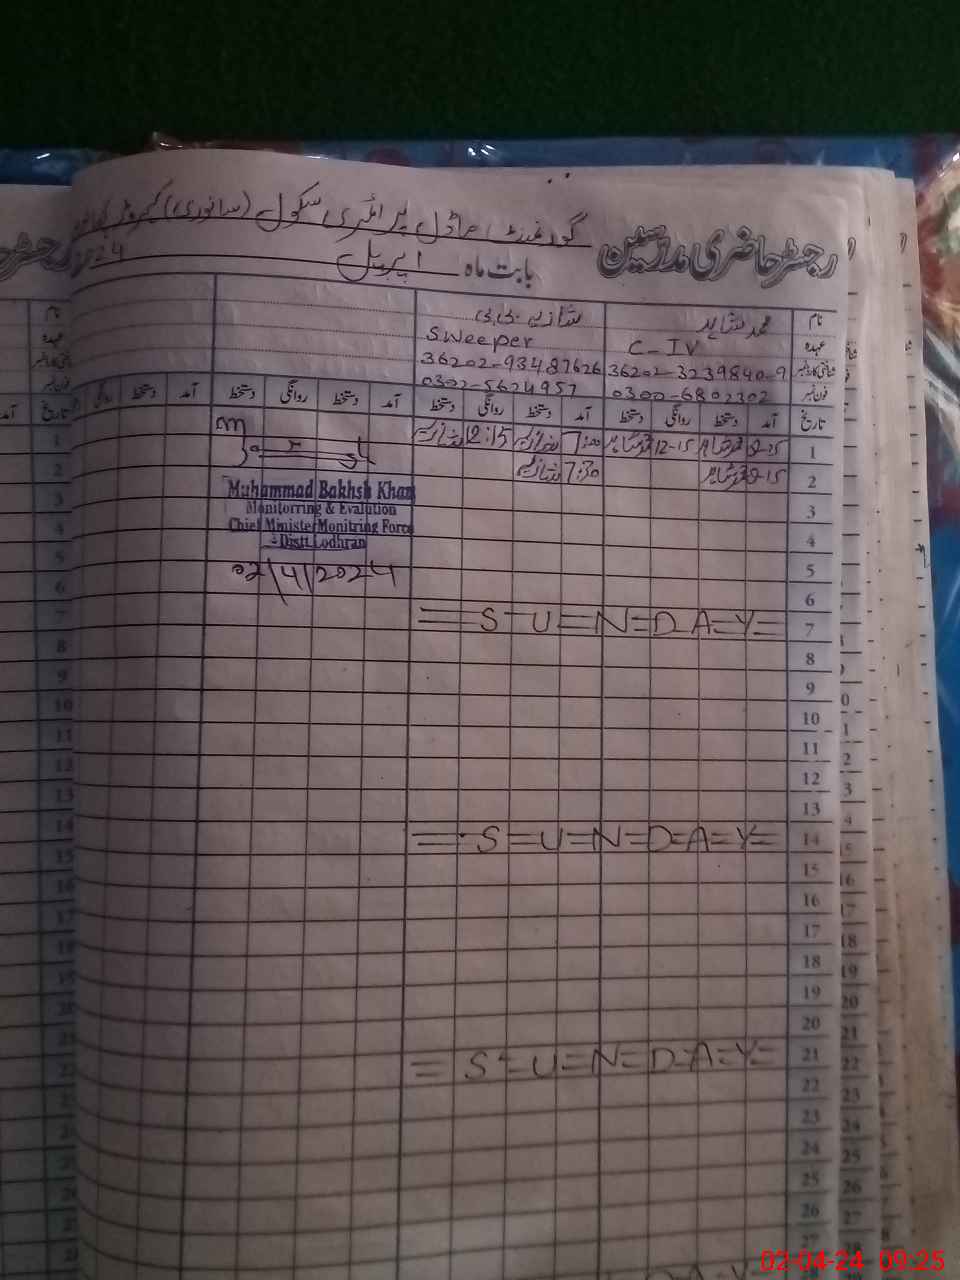 رجسٹر حاضری مدرسین گورنمنٹ ماڈل پرائمری سکول (سانوری) کہروڑ پکا
بابت ماہ اپریل 24
نام محمد شاہد شازیہ بی بی
عہدہ C-IV Sweeper
شناختی کارڈ نمبر 36202-3239840-9 36202-93487626
فون نمبر 0300-6802302 0302-5624957
تاریخ آمد دستخط روانگی دستخط آمد دستخط روانگی دستخط آمد دستخط روانگی دستخط آمد دستخط روانگی
1 محمد شاہد 12-15 محمد شاہد 7:00 شازیہ 12:15 شازیہ
2 محمد شاہد 7:30 شازیہ
3
4
5
6
7 SUNDAY
8
9
10
11
12
13
14 SUNDAY
15
16
17
18
19
20
21 SUNDAY
22
23
24
25
26
27
Muhammad Bakhsh Khan
Monitorring & Evalution
Chief Minister Monitring Force
Distt Lodhran
02/4/2024
02-04-24 09:25